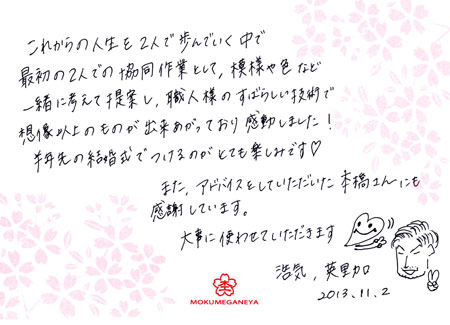 これからの人生を2人で歩んでいく中で
最初の2人での協同作業として，模様や色など
一緒に考えて提案し，職人様のすばらしい技術で
想像以上のものが出来あがっており感動しました！
半年先の結婚式でつけるのがとても楽しみです♡
また，アドバイスをしていただいた本橋さんにも
感謝しています。
大事に使わせていただきます
浩気，英里加
2013.11.2
MOKUMEGANEYA